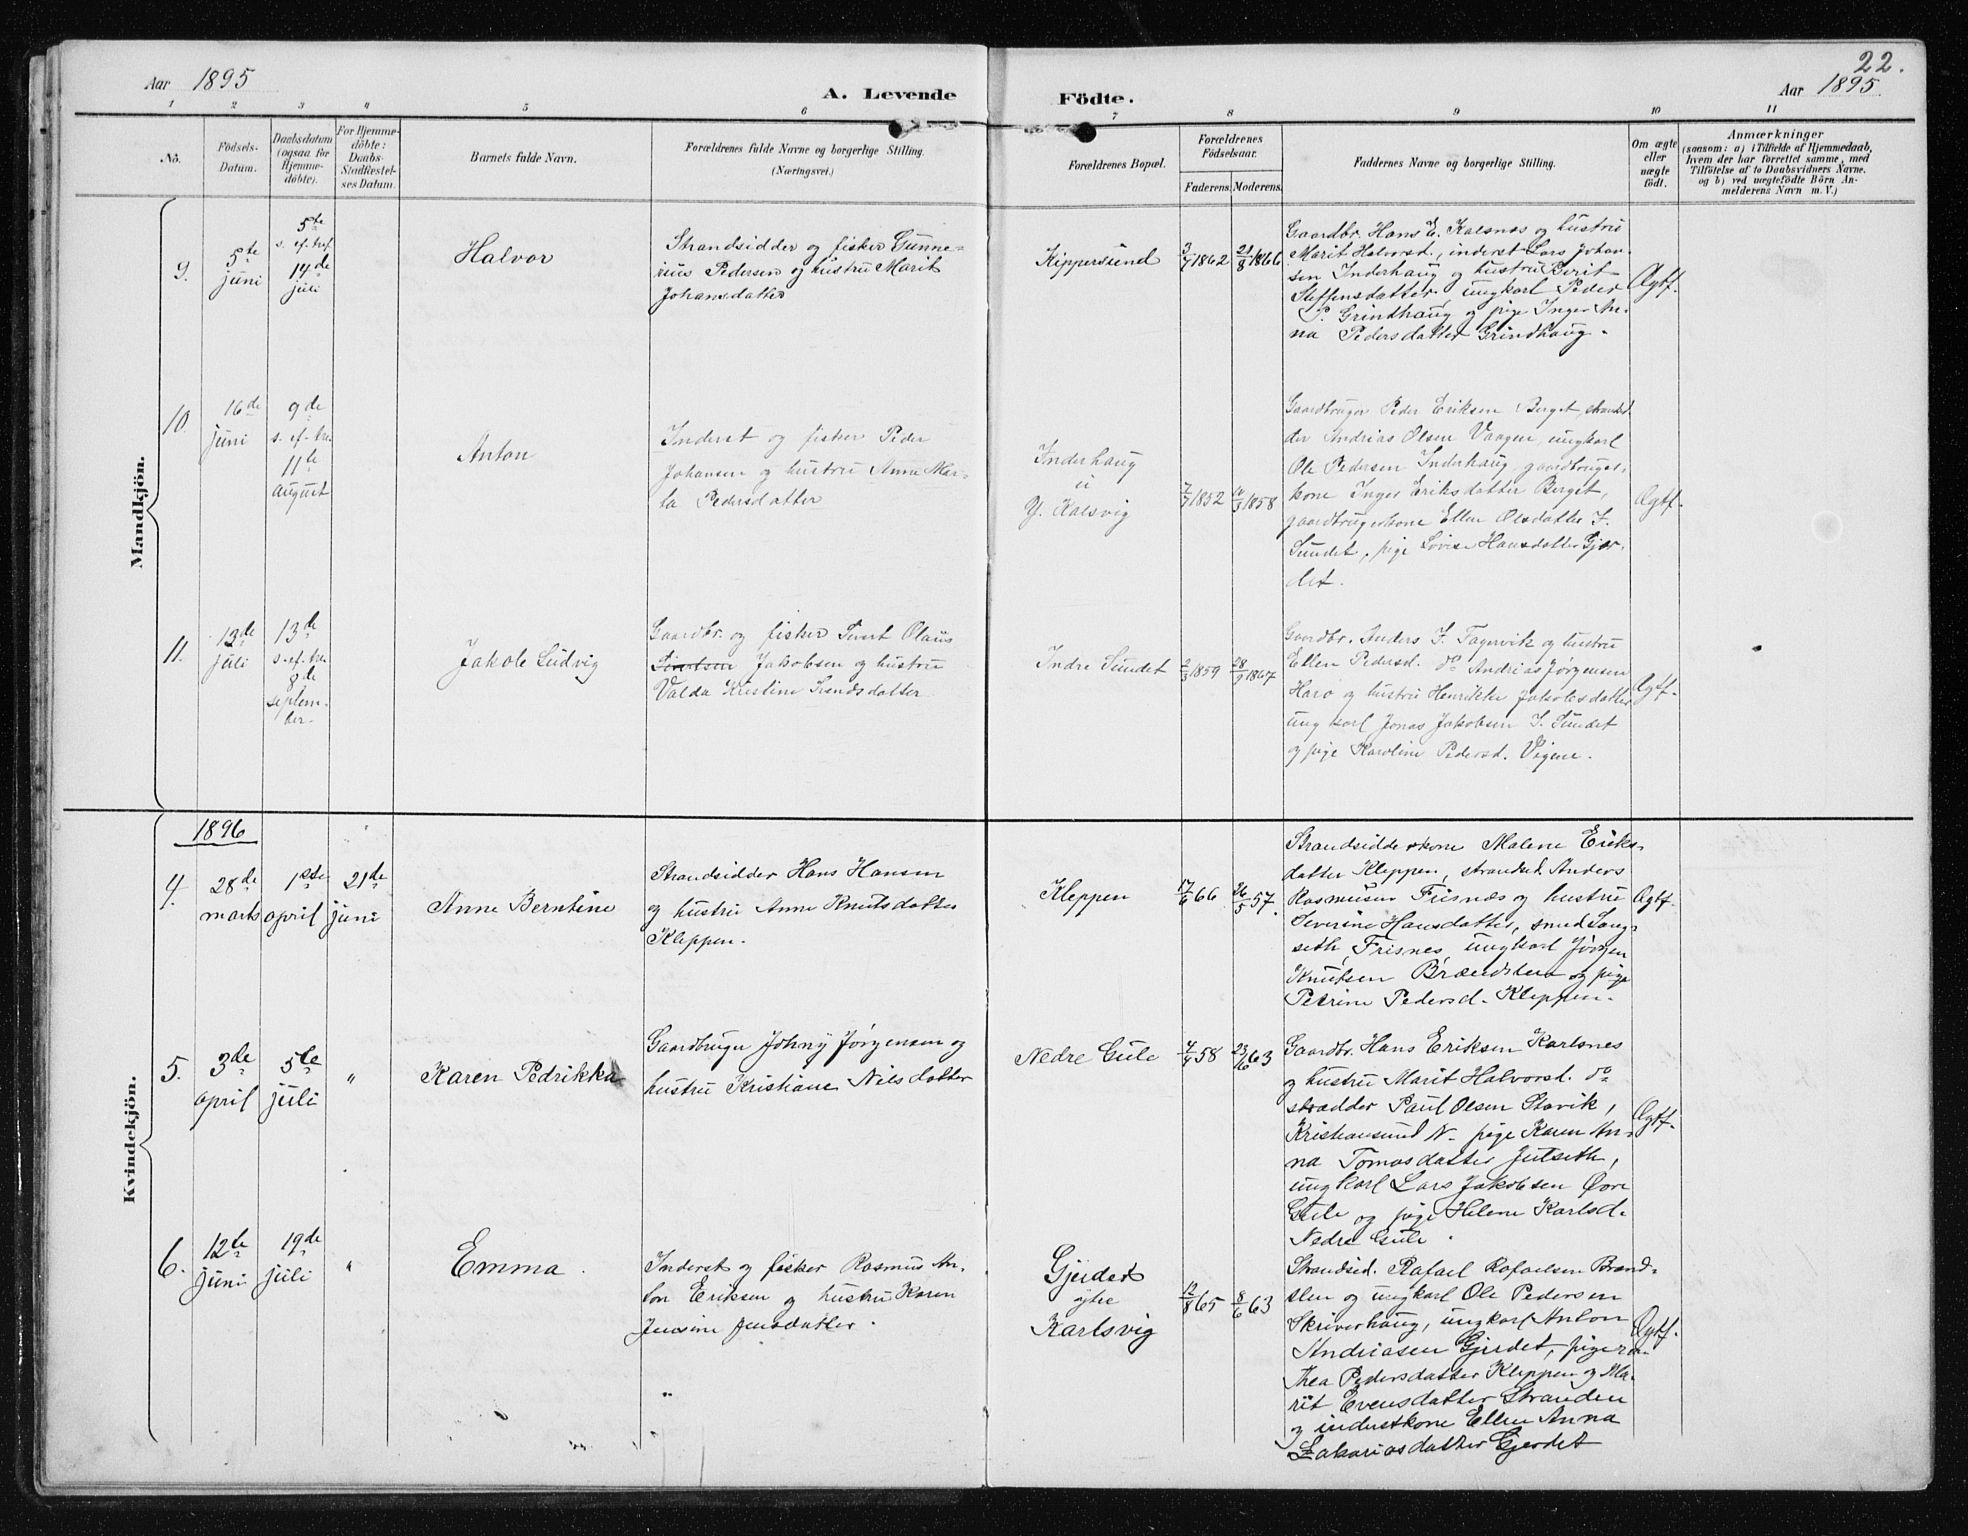 22.
Aar 1895
A. Levende
Födte.
Aar 1895.
1 2 3 4 5 6 7 8 9 10 11
No.
Födsels-
Datum.
Daabsdatum
(ogsaa for
Hjemme-
döbte).
For Hjemme-
döbte:
Daabs-
Stadfæstel-
ses Datum.
Barnets fulde Navn.
Forældrenes fulde Navne og borgerlige Stilling.
(Næringsvei.)
Forældrenes Bopæl.
Forældrenes
Födselsaar.
Faderens. Moderens.
Faddernes Navne og borgerlige Stilling.
Om ægte
eller
uægte
födt.
Anmærkninger
(saasom: a) i Tilfælde af Hjemmedaab,
hvem der har forrettet samme, med
Tilföielse af to Daabsvidners Navne,
og b) ved uægtefödte Börn An-
melderens Navn m. V.)
Mandkjön.
9.
5te
juni
5te
s. ef. tref.
14de
juli
Halvor
Strandsidder og fisker Gunne-
rius Pedersen og hustru Marit
Johansdatter
Kippersund
3/7 1862
21/8 1866
Gaardbr. Hans E. Kalsnes og hustru
Marit Halvorsd., inderst Lars Johan-
sen Inderhaug og hustru Berit
Steffensdatter, ungkarl Peder
P. Grindhaug og pige Inger An-
na Pedersdatter Grindhaug.
Ægtf.
10.
16de
juni
9de
s. ef. tre.
11te
august
Anton
Inderst og fisker Peder
Johansen og hustru Anne Mar-
ta Pedersdatter
Inderhaug
u
Y. Kalsvig
7/7 1852
1858
Gaardbruger Peder Eriksen Berget, strandsid-
der Andrias Olsen Vaagen, ungkarl
Ole Pedersen Inderhaug, gaardbruger-
kone Inger Eriksdatter Berget,
gaardbrugerkone Ellen Olsdatter I.
Sundet, pige Lovise Hansdatter Gjær-
det.
Ægtf.
11.
13de
juli
13de
s. ef. tre.
8de
septem-
ber.
Jakob Ludvig
Gaardbr. og fisker Sivert Olaus
Sivertsen Jakobsen og hustru
Valda Kristine Svendsdatter
Indre Sundet
2/3 1859
28/9 1867
Gaardbr. Anders I. Fagervik og hustru
Ellen Pedersd. do Andrias Jørgensen
Harø og hustru Henrikke Jakobsdatter
ungkarl Jonas Jakobsen I. Sundet
og pige Karoline Pedersd. Vigene.
Ægtf.
Kvindekjön.
1896
4.
28de
marts
1ste
april
21de
juni
Anne Berntine
Strandsidder Hans Hansen
og hustru Anne Knutsdatter
Kleppen.
Kleppen
17/6 66
26/5 57.
Strandsidderkone Malene Eriks-
datter Kleppen, strandsid. Anders
Rasmusen Frisnes og hustru
Severine Hansdatter, smed Lang-
seth, Frisnes, ungkarl Jørgen
Knutsen Brændslen og pige
Petrine Pedersd. Kleppen.
Ægtf.
5.
3de
april
5te
juli
"
Karen Pedrikka
Gaardbruger Johny Jørgensen og
hustru Kristiane Nilsdatter
Nedre Gule
4/4 58
23/10 63
Gaardbr. Hans Eriksen Karlsnes
og hustru Marit Halvorsd. do
skrædder Paul Olsen Stavik,
Kristiansund N. pige Karen An-
na Tomasdatter Julseth,
ungkarl Lars Jakobsen Øvre
Gule og pige Helene Karlsd.
Nedre Gule.
Ægtf.
6.
12te
juni
19de
juli
"
Emma.
Inderst og fisker Rasmus An-
ton Eriksen og hustru Karen
Jensine Jensdatter.
"
Gjerdet
ytre
Karlsvig
12/8 65
8/6 63
Strandsid. Rafael Rafaelsen Brænd-
slen og ungkarl Ole Pedersen
Skriverhaug, ungkarl Anton
Andriasen Gjerdet, piger
thea Pedersdatter Kleppen og Ma-
rit Evensdatter Stranden
og inderstkone Ellen Anna
Zakariasdatter Gjerdet
Ægtf.